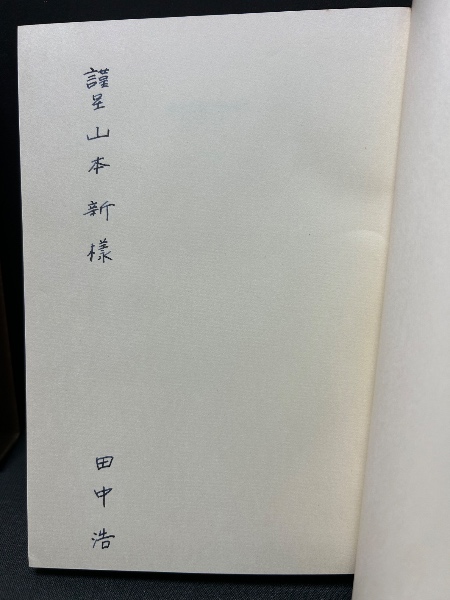 謹呈 山本 新様
田中浩